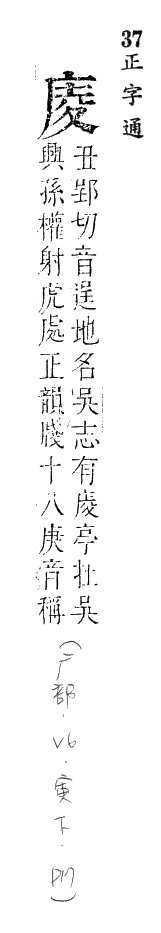 37正字通
庱
丑郢切音逞地名吳志有庱亭扗吳
興孫權射虎處正韻牋十八庚音稱
(广部．V6．寅下．